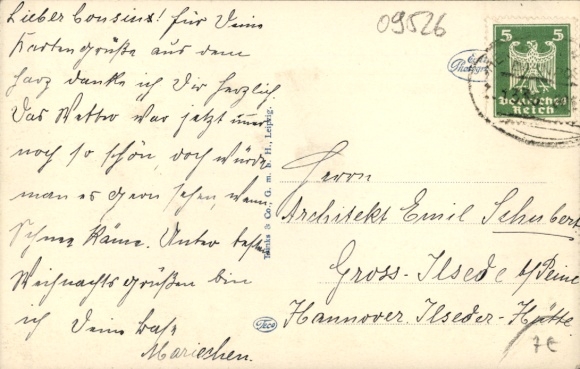 Lieber Cousin! für Deine
Kartengrüße aus dem
Harz danke ich Dir herzlich
Das Wetter war jetzt immer
noch so schön, doch würde
man es gern sehen, wenn
Schnee käme. Unter besten
Weihnachtsgrüßen bin
ich Deine Base
Mariechen.
09526
Echte
Photogr
5 5
Deutsches
Reich
& Co., G. m. b. H., Leipzig.
Teco
Herrn
Architekt Emil Schubert
Gross-Ilsede b/Peine
Hannover. Ilseder-Hütte
7€